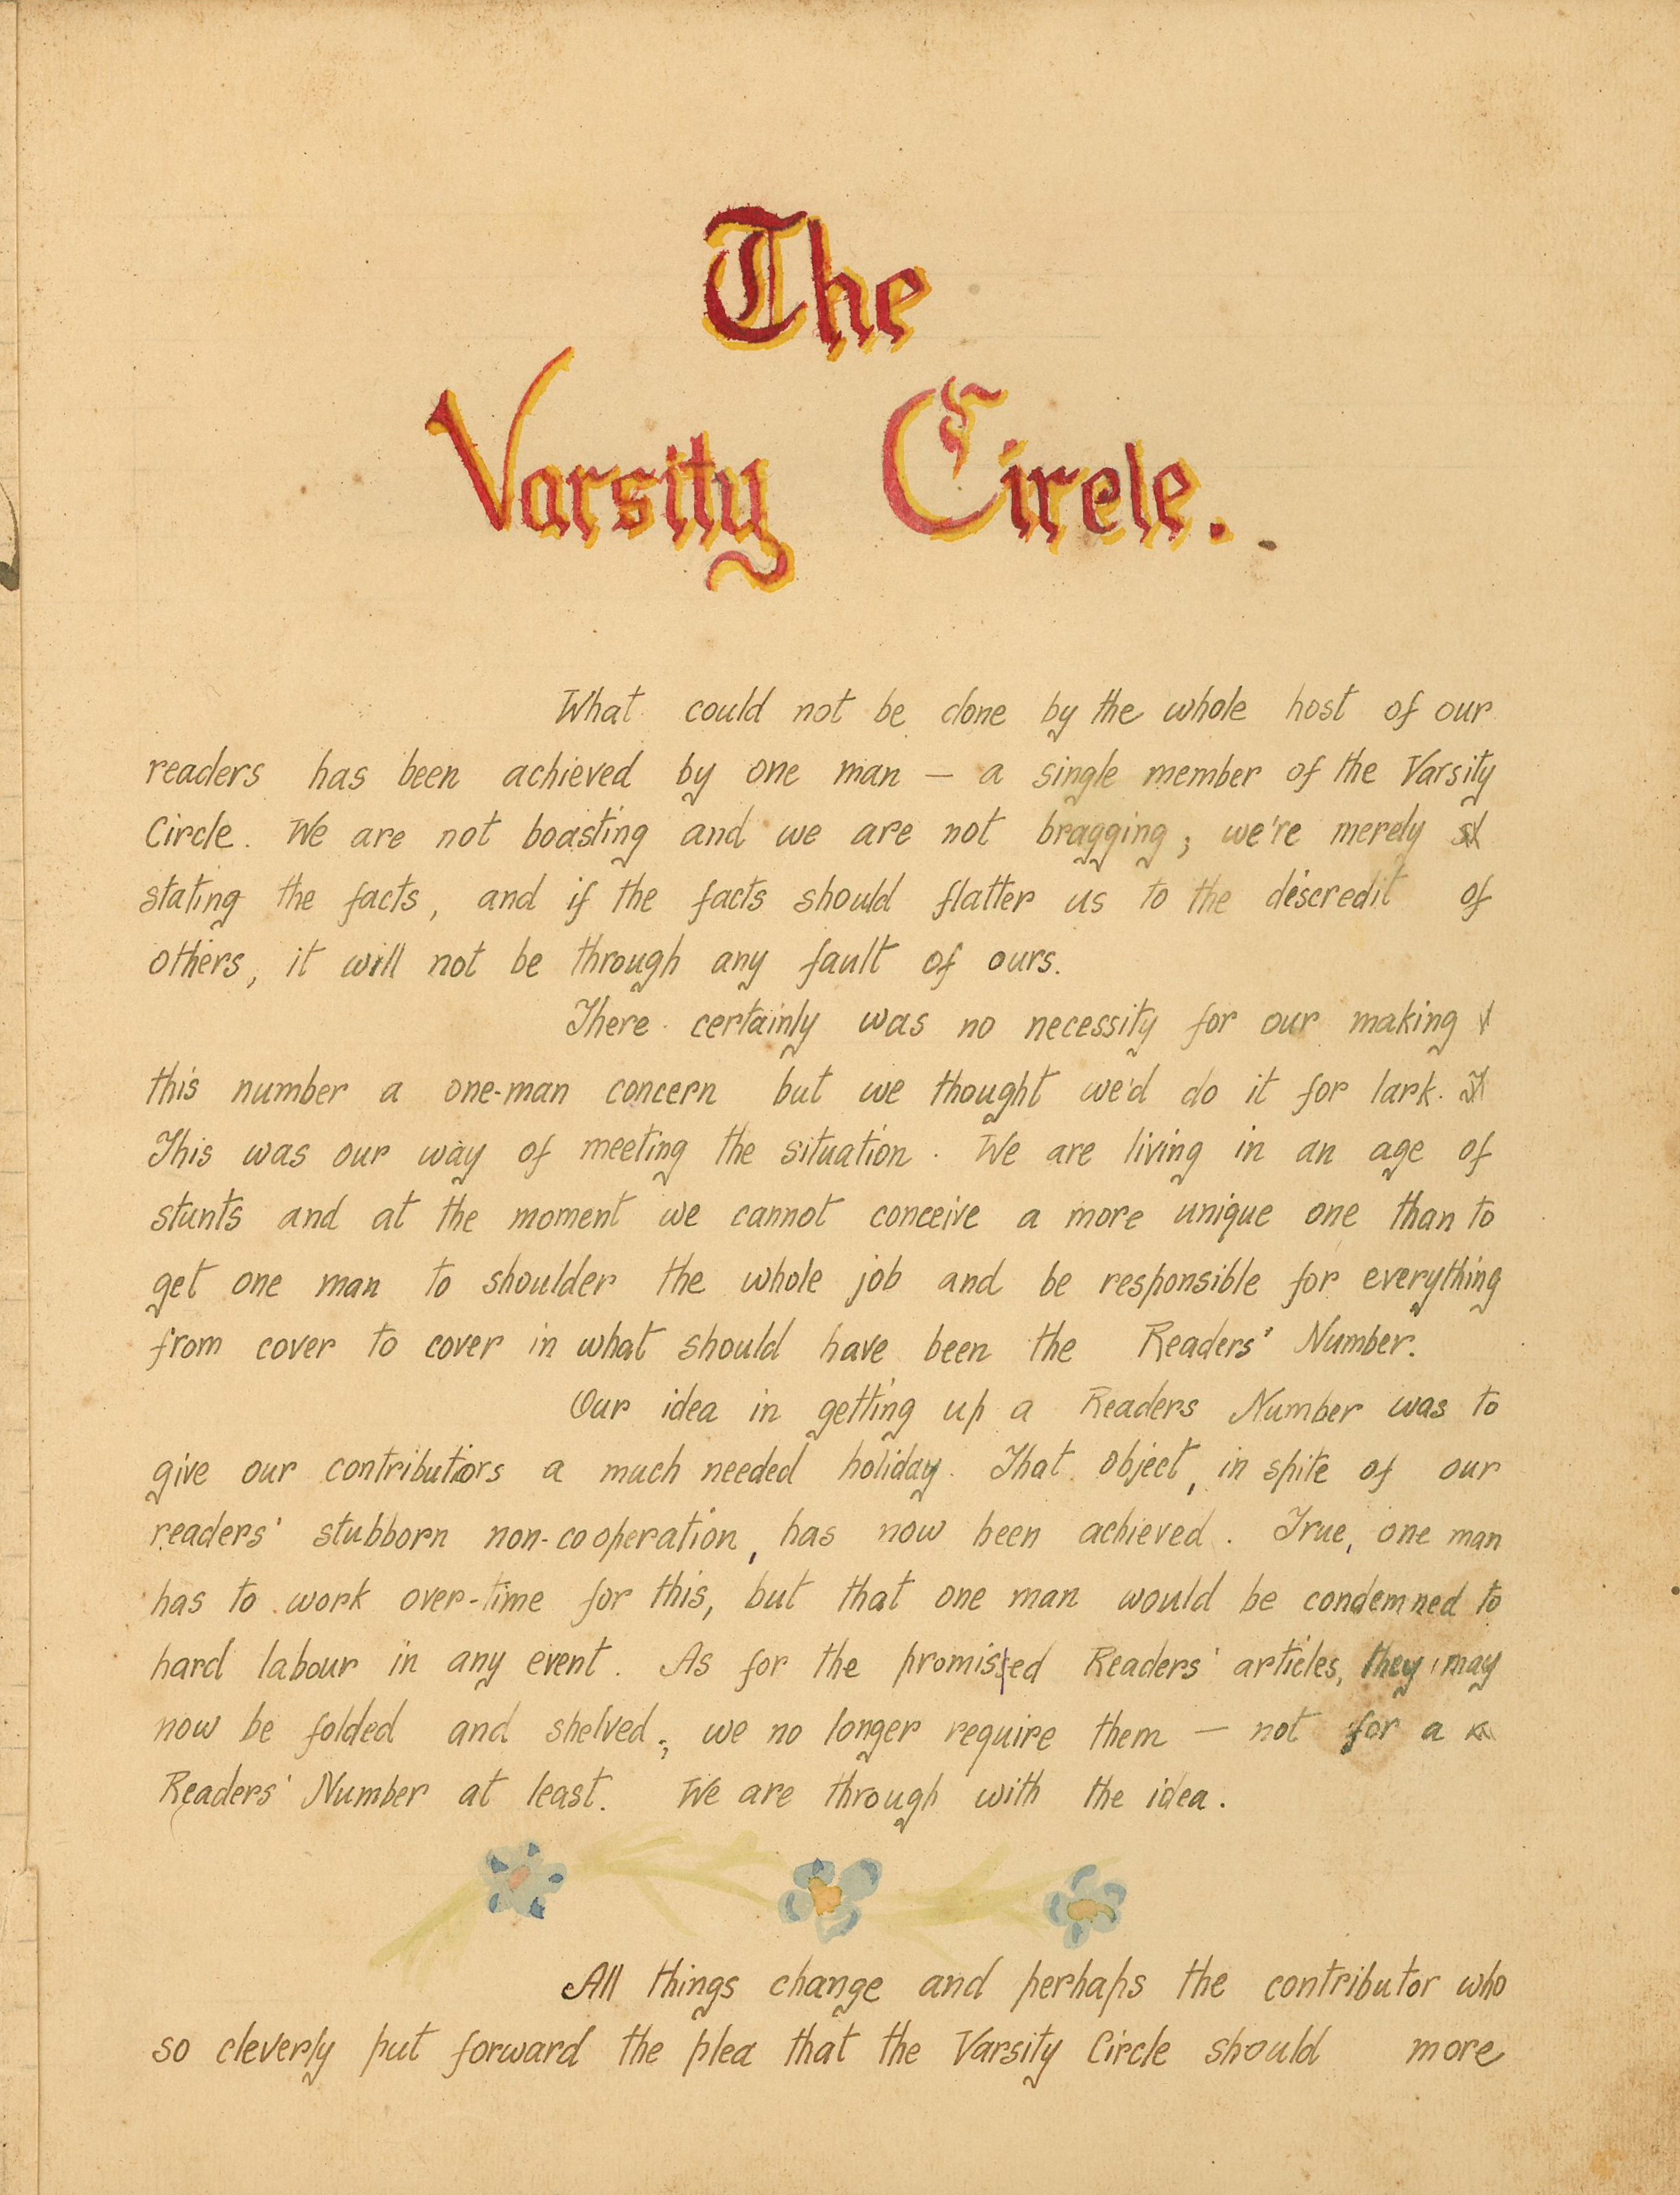 The
Varsity Circle.
What could not be done by the whole host of our
readers has been achieved by one man — a single member of the Varsity
Circle. We are not boasting and we are not bragging; we're merely
stating the facts, and if the facts should flatter us to the discredit of
others, it will not be through any fault of ours.
There certainly was no necessity for our making
this number a one-man concern but we thought we'd do it for lark.
This was our way of meeting the situation. We are living in an age of
stunts and at the moment we cannot conceive a more unique one than to
get one man to shoulder the whole job and be responsible for everything
from cover to cover in what should have been the Readers' Number.
Our idea in getting up a Readers Number was to
give our contributors a much needed holiday. That object, in spite of our
readers' stubborn non-cooperation, has now been achieved. True, one man
has to work over-time for this, but that one man would be condemned to
hard labour in any event. As for the promised Readers' articles, they may
now be folded and shelved; we no longer require them — not for a
Readers' Number at least. We are through with the idea.
All things change and perhaps the contributor who
so cleverly put forward the plea that the Varsity Circle should more